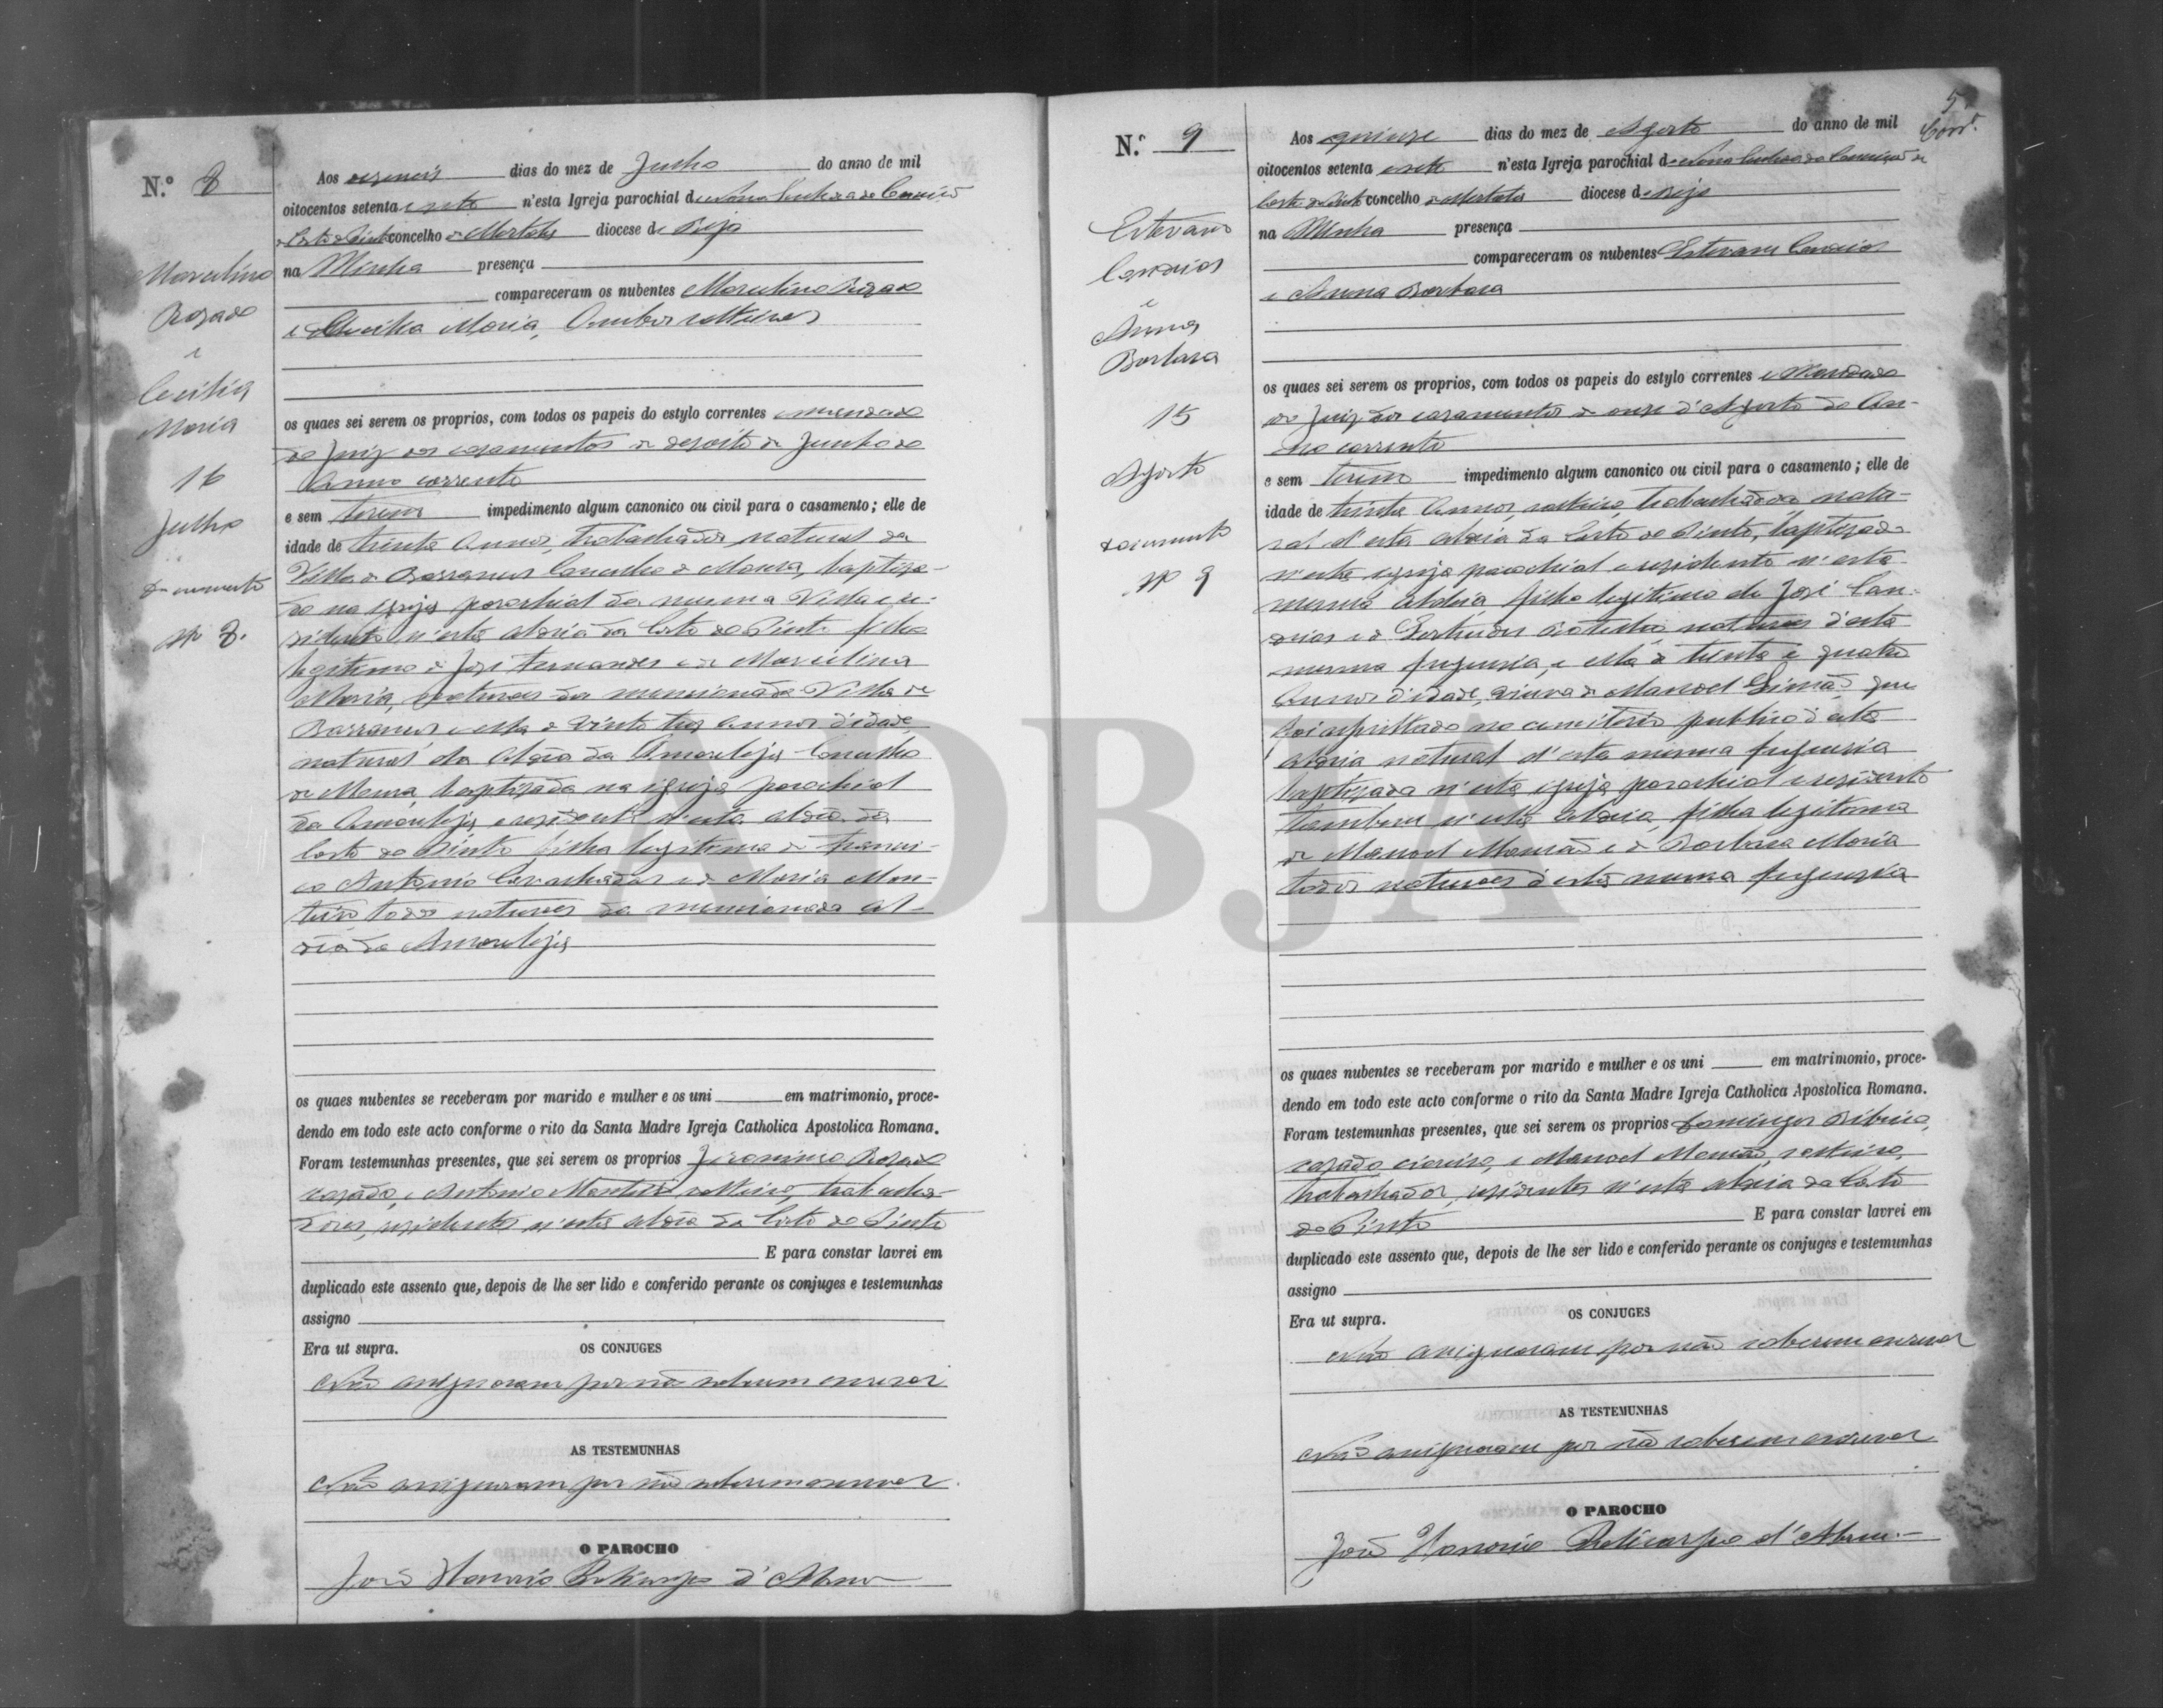 N.º 8
Marcelino
Rozado
e
Cecilia
Maria
16
Julho
Documento
Nº 8.
Aos dezaseis dias do mez de Julho do anno de mil
oitocentos setenta e sete n'esta Igreja parochial de Nossa Senhora da Conceição
da Corte do Pinto concelho de Mertola diocese de Beja
na Minha presença
compareceram os nubentes Marcelino Rozado
e Cecilia Maria, Ambos solteiros
os quaes sei serem os proprios, com todos os papeis do estylo correntes e mandado
do Juiz dos casamentos de dezoito de Junho do
Anno corrente
e sem terem impedimento algum canonico ou civil para o casamento; elle de
idade de trinta Annos, trabalhador, natural da
Villa de Barrancos Concelho de Moura, baptiza-
do na igreja parochial da mesma Villa e re-
zidente n'esta aldeia da Corte do Pinto filho
legitimo de José Fernandes e de Marcelina
Maria, naturaes da mencionada Villa de
Barrancos e ella de vinte tres annos d'idade
natural da aldeia da Amareleja Concelho
de Moura, baptizada na igreja parochial
da Amareleja e rezidente n'esta aldeia da
Corte do Pinto filha legitima de Francis-
co Antonio Cavalhadas e de Maria Mon-
teiro todos naturaes da mencionada al-
deia da Amareleja
os quaes nubentes se receberam por marido e mulher e os uni em matrimonio, proce-
dendo em todo este acto conforme o rito da Santa Madre Igreja Catholica Apostolica Romana.
Foram testemunhas presentes, que sei serem os proprios Jeronimo Rozado
cazado, e Antonio Monteiro solteiro, trabalha-
dores, rezidentes n'esta aldeia da Corte do Pinto
E para constar lavrei em
duplicado este assento que, depois de lhe ser lido e conferido perante os conjuges e testemunhas
assigno
Era ut supra.
OS CONJUGES
Não assignaram por não saberem escrever
AS TESTEMUNHAS
Não assignaram por não saberem escrever.
O PAROCHO
João Honorio Policarpo d'Abreu
5
N.º 9
Estevam
e
Anna
Barbara
15
Agosto
Documento
Nº 9
Aos quinze dias do mez de Agosto do anno de mil
oitocentos setenta e sete n'esta Igreja parochial de Nossa Senhora da Conceição da
Corte do Pinto concelho de Mertola diocese de Beja
na Minha presença
compareceram os nubentes Estevam
e Anna Barbara
os quaes sei serem os proprios, com todos os papeis do estylo correntes e Mandado
do Juiz dos cazamentos de onze d'Agosto do An-
no corrente
e sem terem impedimento algum canonico ou civil para o casamento; elle de
idade de trinta Annos, solteiro, trabalhador natu-
ral d'esta aldeia da Corte do Pinto, baptizado
n'esta igreja parochial e rezidente n'esta
mesma aldeia filho legitimo de José
e de Gertrudes naturaes d'esta
mesma freguezia, e ella de trinta e quatro
Annos d'idade, viuva de Manoel Simão que
foi sepultado no cemiterio publico d'esta
aldeia natural d'esta mesma freguezia
baptizada n'esta igreja parochial e rezidente
tambem n'esta aldeia, filha legitima
de Manoel Mamão e de Barbara Maria
todos naturaes d'esta mesma freguezia
os quaes nubentes se receberam por marido e mulher e os uni em matrimonio, proce-
dendo em todo este acto conforme o rito da Santa Madre Igreja Catholica Apostolica Romana.
Foram testemunhas presentes, que sei serem os proprios Domingos Ribeiro,
cazado, e Manoel Mamão, solteiro,
trabalhador, rezidentes n'esta aldeia da Corte
do Pinto E para constar lavrei em
duplicado este assento que, depois de lhe ser lido e conferido perante os conjuges e testemunhas
assigno
Era ut supra.
OS CONJUGES
Não assignaram por não saberem escrever
AS TESTEMUNHAS
Não assignaram por não saberem escrever
O PAROCHO
João Honorio Policarpo d'Abreu.
ADBJA